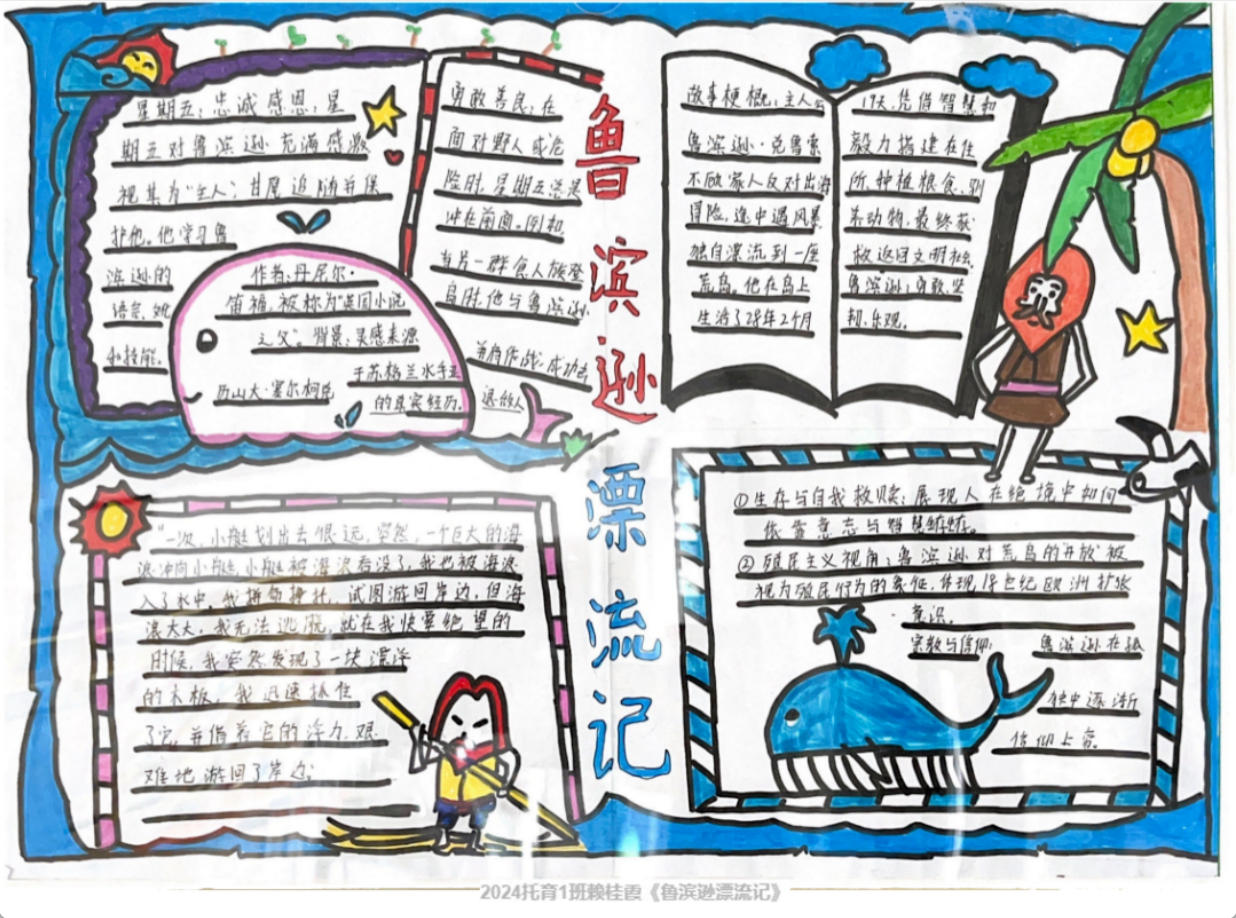 鲁滨逊
漂流记
星期五：忠诚感恩：星
期五对鲁滨逊充满感激
视其为“主人”，甘愿追随并保
护他。他学习鲁
滨逊的
语言、
和技能。
勇敢善良：在
面对野人或危
险时，星期五总是
冲在前面。例如
当另一群食人族登
岛时，他与鲁滨逊
并肩作战，成功击
退敌人
作者：丹尼尔·
笛福，被称为“英国小说
之父”。背景：灵感来源
于苏格兰水手亚
历山大·塞尔柯克
的真实经历。
故事梗概：主人公
鲁滨逊·克鲁索
不顾家人反对出海
冒险，途中遇风暴
独自漂流到一座
荒岛。他在岛上
生活了28年2个月
19天，凭借智慧和
毅力搭建住
所、种植粮食、驯
养动物，最终获
救返回文明社会
鲁滨逊：勇敢、坚
韧、乐观。
“一次，小艇划出去很远，突然，一个巨大的海
浪冲向小艇，小艇被海浪吞没了，我也被海浪
入了水中。我拼命挣扎，试图游回岸边，但海
浪太大，我无法逃脱，就在我快要绝望的
时候，我突然发现了一块漂浮
的木板，我迅速抓住
了它，并借着它的浮力，艰
难地游回了岸边。
①生存与自我救赎：展现人在绝境中如何
依靠意志与智慧
②殖民主义视角：鲁滨逊对荒岛的“开放”被
视为殖民行为的象征，体现18世纪欧洲扩张
意识。
宗教与信仰：鲁滨逊在孤
独中逐渐
信仰上帝。
2024托育1班赖桂霞《鲁滨逊漂流记》